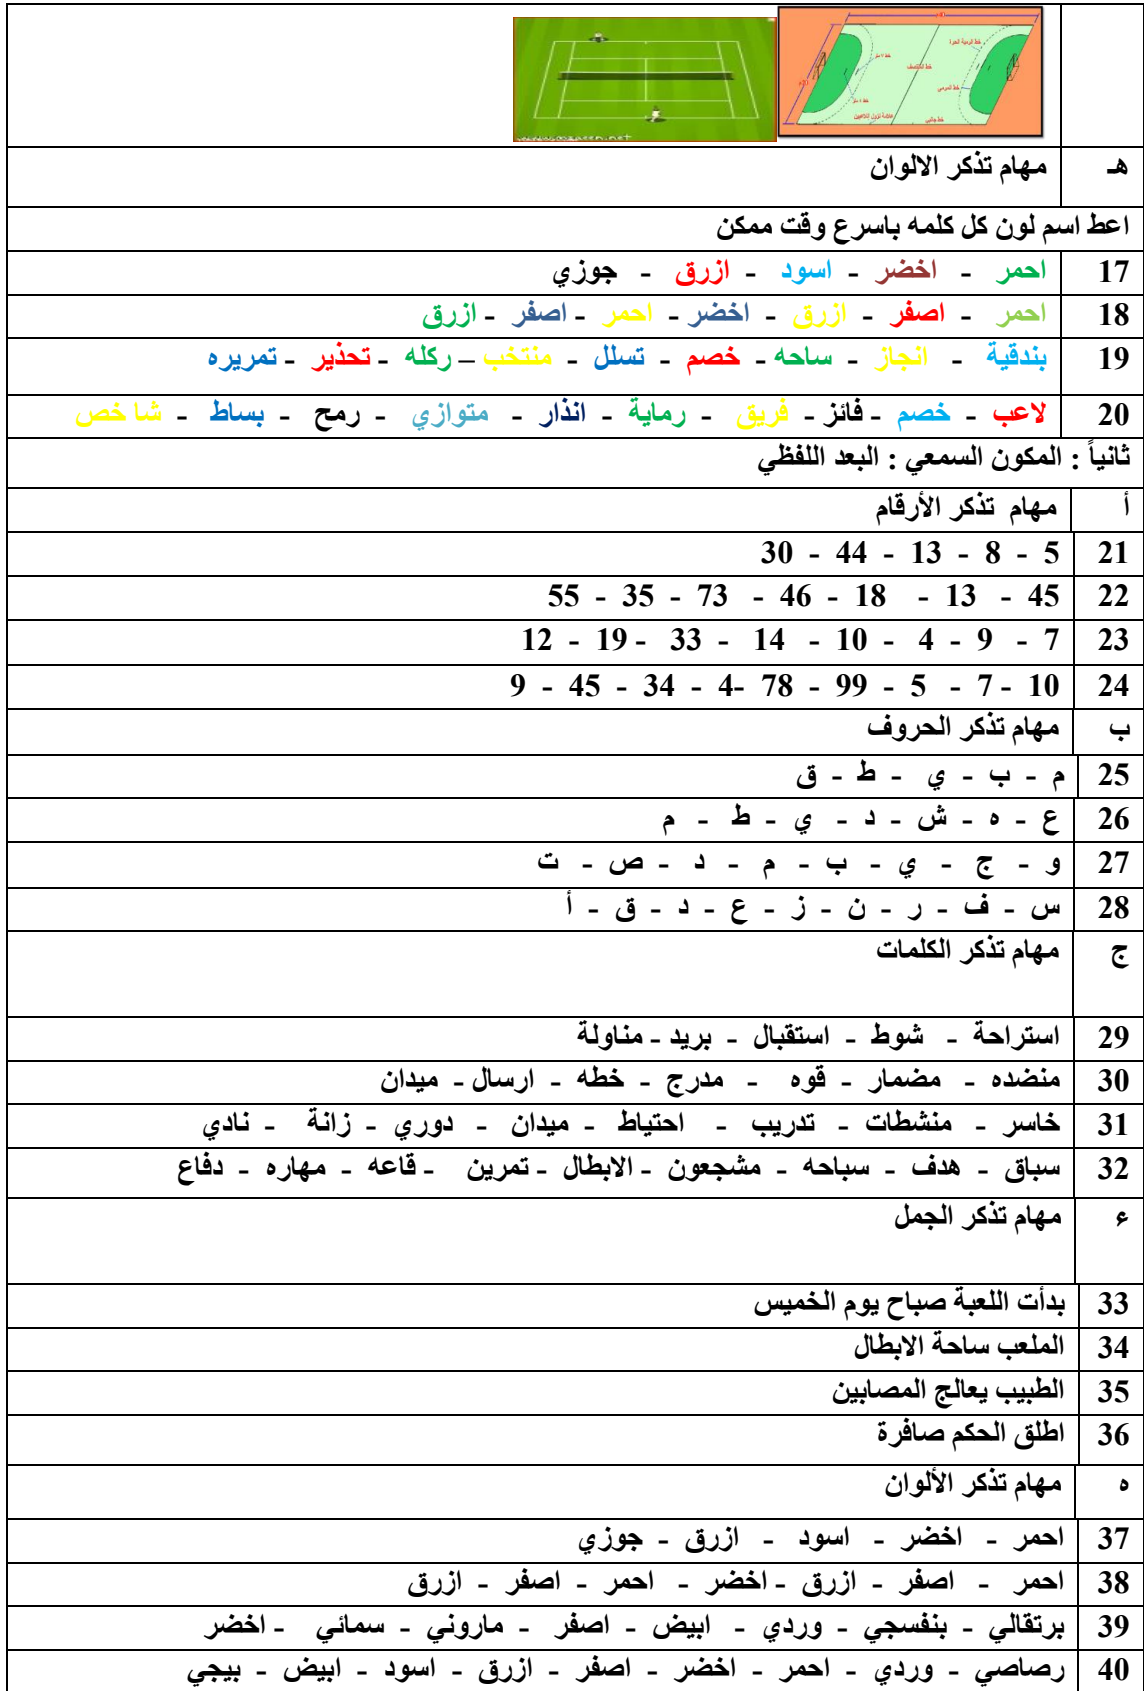 خط الرمية الحرة
خط جانبي
هـ مهام تذكر الالوان
اعط اسم لون كل كلمه باسرع وقت ممكن
17 احمر - اخضر - اسود - ازرق - جوزي
18 احمر - اصفر - ازرق - اخضر - احمر - اصفر - ازرق
19 بندقية - انجاز - ساحه - خصم - تسلل - منتخب – ركله - تحذير - تمريره
20 لاعب - خصم - فائز - فريق - رماية - انذار - متوازي - رمح - بساط - شاخص
ثانياً : المكون السمعي : البعد اللفظي
أ مهام تذكر الأرقام
21 5 - 8 - 13 - 44 - 30
22 45 - 13 - 18 - 46 - 73 - 35 - 55
23 7 - 9 - 4 - 10 - 14 - 33 - 19 - 12
24 10 - 7 - 5 - 99 - 78 - 4 - 34 - 45 - 9
ب مهام تذكر الحروف
25 م - ب - ي - ط - ق
26 ع - ه - ش - د - ي - ط - م
27 و - ج - ي - ب - م - د - ص - ت
28 س - ف - ر - ن - ز - ع - د - ق - أ
ج مهام تذكر الكلمات
29 استراحة - شوط - استقبال - بريد - مناولة
30 منضده - مضمار - قوه - مدرج - خطه - ارسال - ميدان
31 خاسر - منشطات - تدريب - احتياط - ميدان - دوري - زانة - نادي
32 سباق - هدف - سباحه - مشجعون - الابطال - تمرين - قاعه - مهاره - دفاع
ء مهام تذكر الجمل
33 بدأت اللعبة صباح يوم الخميس
34 الملعب ساحة الابطال
35 الطبيب يعالج المصابين
36 اطلق الحكم صافرة
ه مهام تذكر الألوان
37 احمر - اخضر - اسود - ازرق - جوزي
38 احمر - اصفر - ازرق - اخضر - احمر - اصفر - ازرق
39 برتقالي - بنفسجي - وردي - ابيض - اصفر - ماروني - سمائي - اخضر
40 رصاصي - وردي - احمر - اخضر - اصفر - ازرق - اسود - ابيض - بيجي